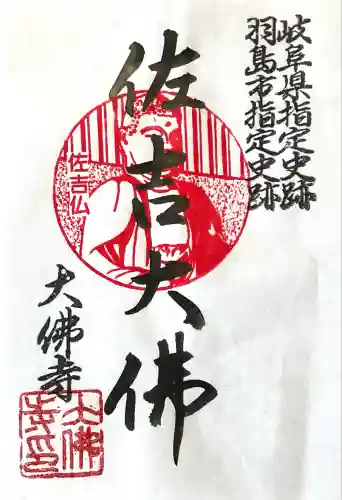 岐阜県指定史跡
羽島市指定史跡
佐吉大佛
佐吉仏
大佛寺
大佛寺印